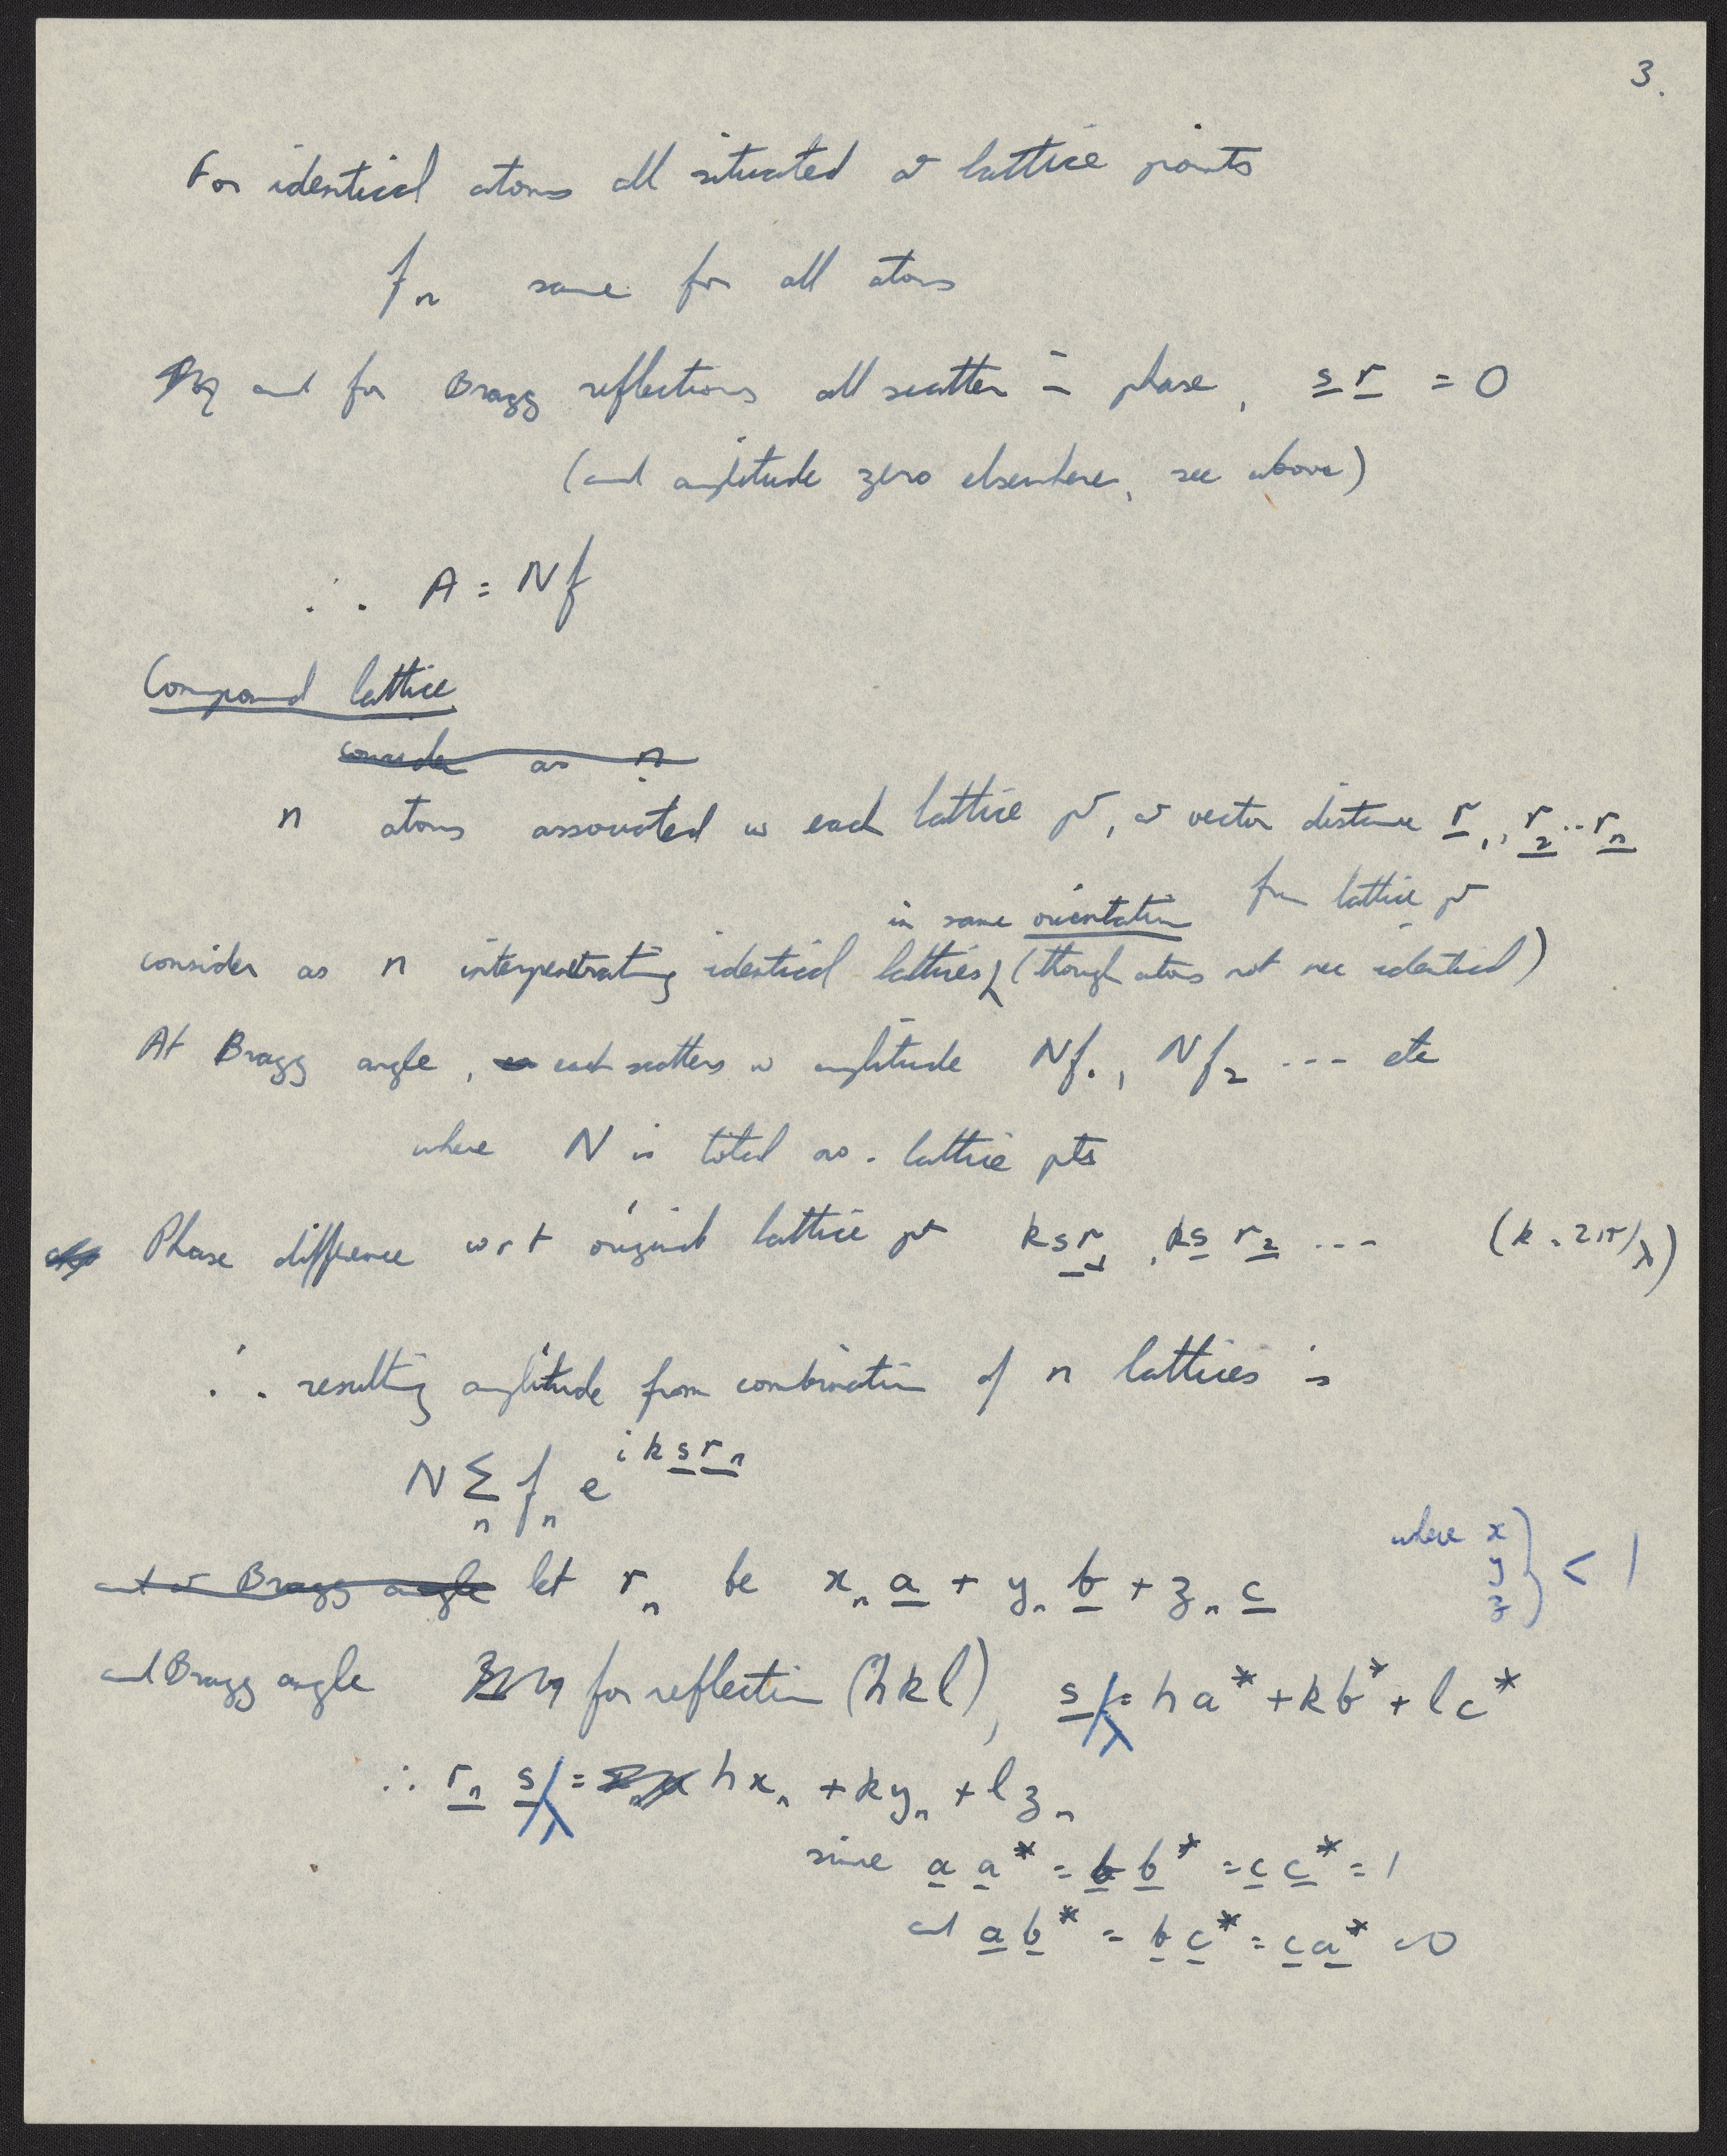 3.
For identical atoms all situated at lattice points
fn same for all atoms
and for Bragg reflections all scatter in phase, s r = 0
(and amplitude zero elsewhere, see above)
∴ A = Nf
Compound lattice
consider as n
n atoms associated w each lattice pt, at vector distance r1, r2 .. rn
from lattice pt
in same orientation
consider as n interpenetrating identical lattices (though atoms not nec identical)
At Bragg angle, each scatters w amplitude Nf1, Nf2 --- etc
where N is total no. lattice pts
Phase difference wrt original lattice pt k s r1, k s r2 --- (k = 2π/λ)
∴ resulting amplitude from combination of n lattices is
N Σn fn e^{i k s rn}
and at Bragg angle let rn be xn a + yn b + zn c
where x y z } < 1
and Bragg angle for reflection (hkl), s/λ = ha* + kb* + lc*
∴ rn s/λ = hxn + kyn + lzn
since a a* = b b* = c c* = 1
and a b* = b c* = c a* = 0